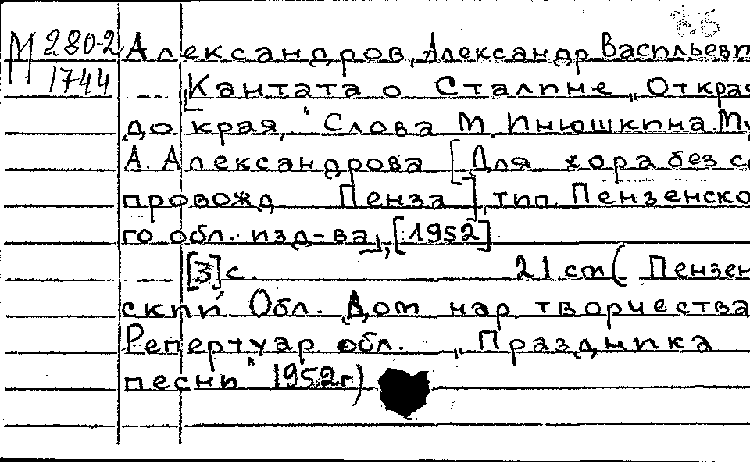 М 280-2 Александров, Александр Васильев
1744 Кантата о Сталине „От края
до края." Слова М. Инюшкина М
А. Александрова [Для хора без со
провожд Пенза], тип. Пензенско
го обл. изд-ва, [1952]
[3] с. 21 cm (Пензен
ский Обл. Дом нар творчества
Репертуар обл. „Праздника
песни" 1952г)